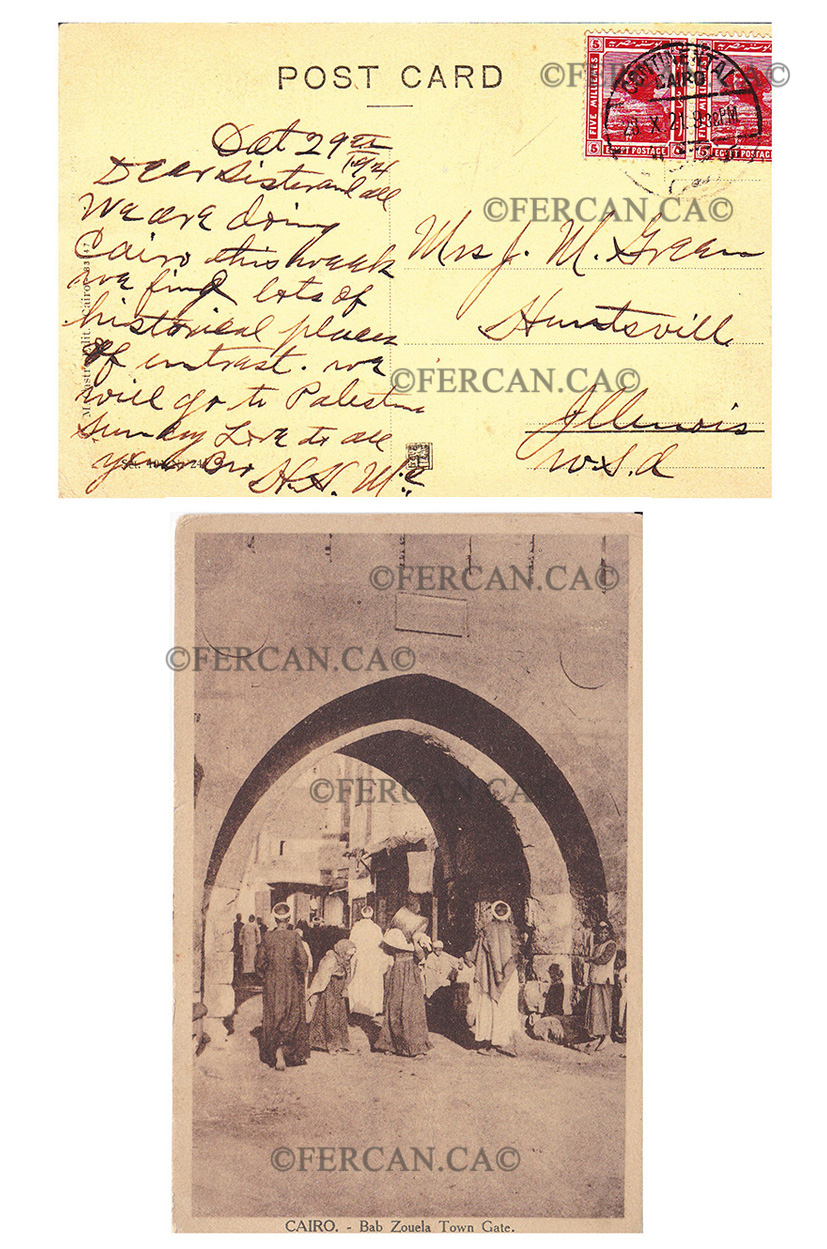 POST CARD
©FERCAN.CA©
5 5
FIVE MILLIEMES
EGYPT POSTAGE
EGYPT POSTAGE
CONTINENTAL
CAIRO
28 X 21
PM
Sat 29
Dear Sister and all
We are doing
Cairo this week
we find lots of
historical places
of intrast. we
will go to Palestine
Sunday Love to all
your Bro H.H. Mc
©FERCAN.CA©
Mrs J. M. Green
Huntsvill
©FERCAN.CA©
Illenois
U.S.A
Cairo
©FERCAN.CA©
©FERCAN.CA©
©FERCAN.CA©
©FERCAN.CA©
CAIRO. - Bab Zouela Town Gate.